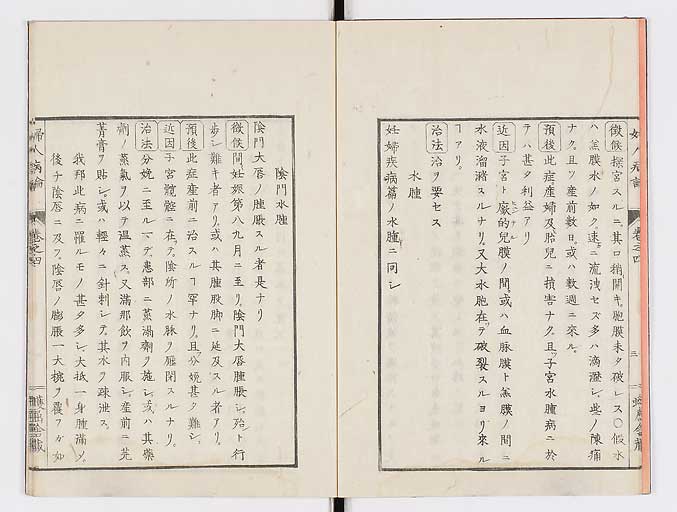 徴候探宮スルニ其口稍開キ。胞膜未タ破レス〇假水
ハ羔膜水ノ如ク。速ニ流洩セズ多ハ滴瀝シ。些ノ陳痛
ナク。且ツ産前數日。或ハ數週ニ來ル。
預後此症産婦及胎兒ニ損害ナク。且ツ子宮水腫病ニ於
テハ甚タ利益アリ
近因子宮ト廠的兒膜ノ間。或ハ血脉膜ト羔膜ノ間ニ
水液溜瀦スルナリ。又大水胞在テ破裂スルヨリ來ル
ヿアリ。
治法治ヲ要セス
水腫
妊婦疾病篇ノ水腫ニ同シ
陰門水腫
陰門大唇ノ腫脹スル者是ナリ
徴候間妊娠第八九月ニ至リ。陰門大唇腫脹シ。殆ト行
歩シ難キ者アリ。或ハ其腫股脚ニ延及スル者アリ。
預後此症産前ニ治スルヿ罕ナリ。且分娩甚タ難シ。
近因子宮髖骻ニ在テ。陰所ノ水脉ヲ壓閉スルナリ。
治法分娩ニ至ルマデ。患部ニ蒸湯劑ヲ施シ。或ハ其藥
劑ノ蒸氣ヲ以テ温蒸ス。又滿那飲ヲ内服シ。産前ニ芫
菁膏ヲ貼シ。或ハ輕々ニ針刺シテ。其水ヲ疎泄ス。
我邦此病ニ罹ルモノ甚タ多シ。大抵一身腫滿シ。
後チ陰唇ニ及フ。陰唇ノ膨脹一大椀ヲ覆フカ如
婦人病論
卷之四